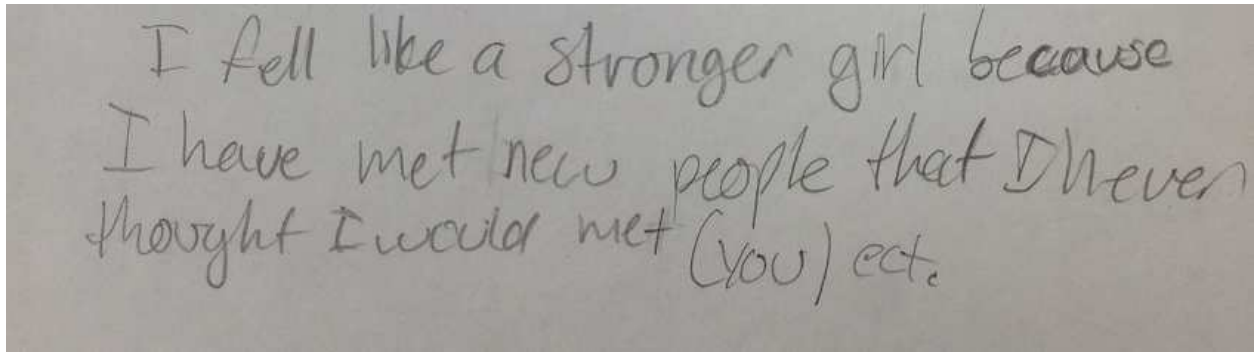 I fell like a stronger girl because
I have met new people that I never
thought I would met (you) ect.